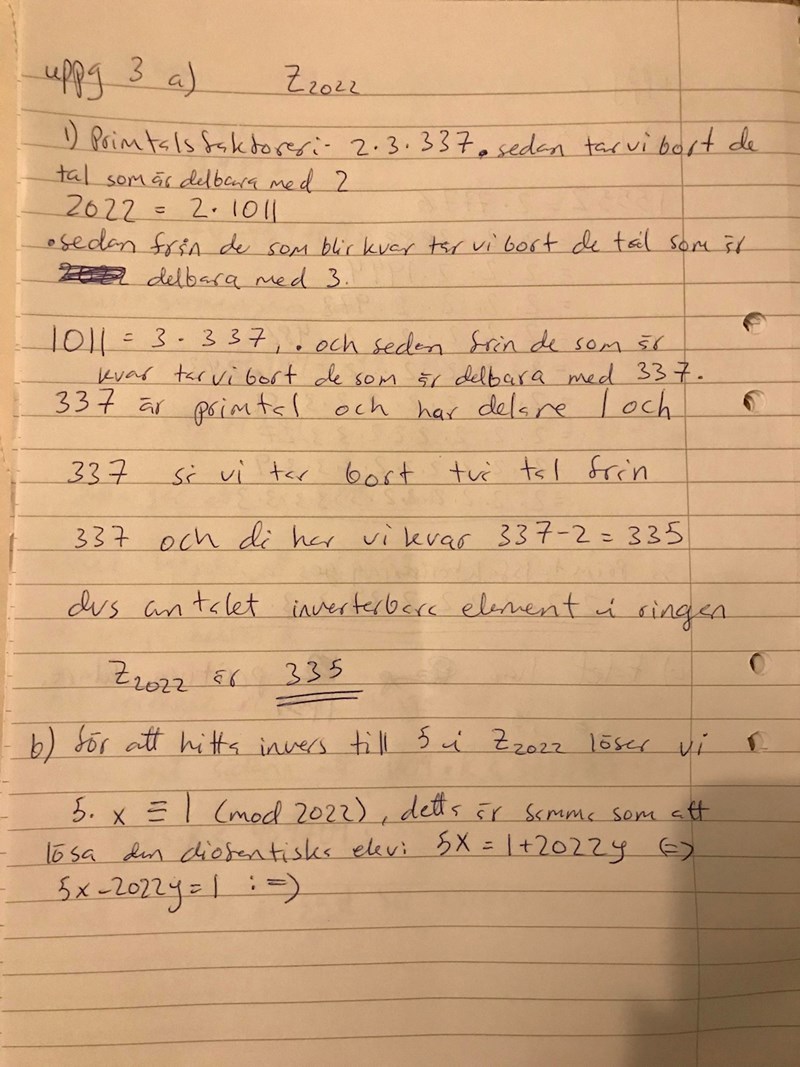 uppg 3 a) Z₂₀₂₂
1) Primtalsfaktoreri- 2·3·337. sedan tar vi bort de
tal som är delbara med 2
2022 = 2·1011
• sedan från de som blir kvar tar vi bort de tal som är
delbara med 3.
1011 = 3·337, . och sedan från de som är
kvar tar vi bort de som är delbara med 337.
337 är primtal och har delare 1 och
337 så vi tar bort två tal från
337 och då har vi kvar 337-2 = 335
dvs antalet inverterbara element i ringen
Z₂₀₂₂ är 335
b) för att hitta invers till 5 i Z₂₀₂₂ löser vi
5·x ≡ 1 (mod 2022), detta är samma som att
lösa den diofentiska ekv: 5x = 1+2022y (=)
5x-2022y=1 :=)